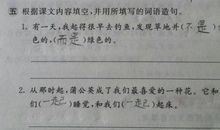 五 根据课文内容填空,并用所填的词语造句。
1. 有一天,我起得很早去钓鱼,发现草地并(不是)
色的,(而是)绿色的。
2. 从那时起,蒲公英成了我们最喜爱的一种花。它和
们(一起)睡觉,和我们(一起)起床。